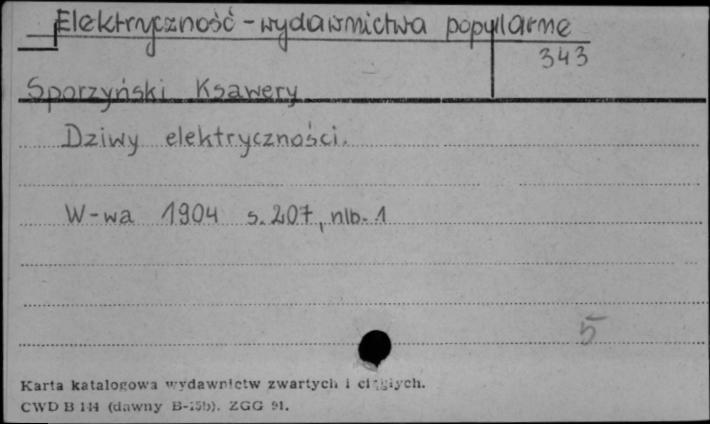 Elektryczność - wydawnictwa popularne
343
Sporzyński Ksawery
Dziwy elektryczności.
W-wa 1904 s. 207, nlb. 1
5
Karta katalogowa wydawnictw zwartych i ciągłych.
CWD B 144 (dawny B-15b). ZGG 91.